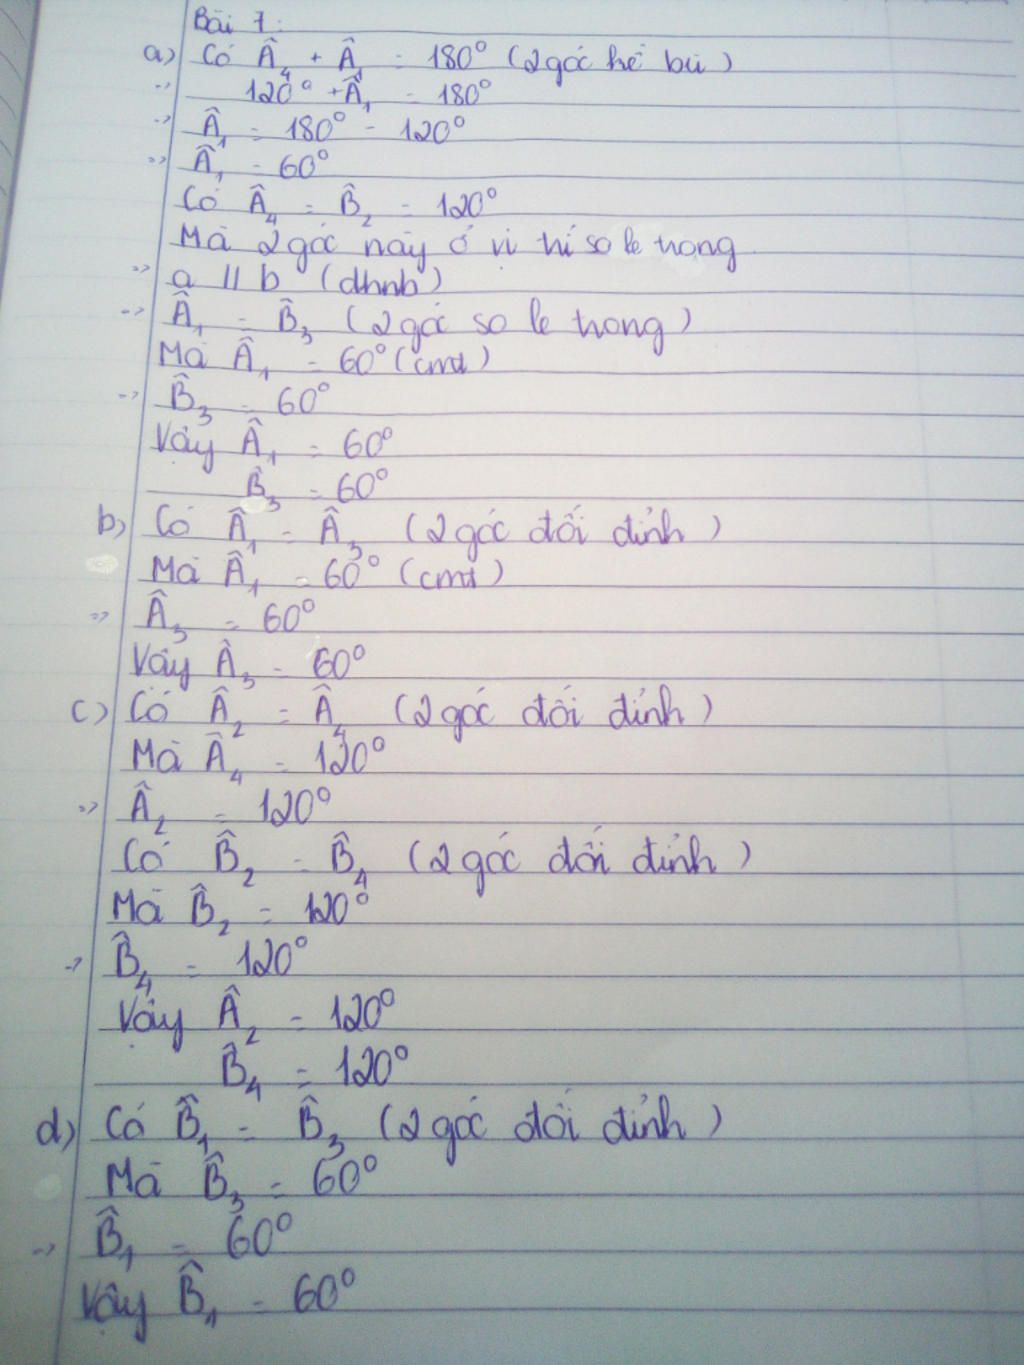 Bài 1:
a) Có Â₄ + Â₁ = 180° (2 góc kề bù)
=> 120° + Â₁ = 180°
=> Â₁ = 180° - 120°
=> Â₁ = 60°
Có Â₄ = B̂₂ = 120°
Mà 2 góc này ở vị trí so le trong
=> a // b (dhnb)
=> Â₁ = B̂₃ (2 góc so le trong)
Mà Â₁ = 60° (cmt)
=> B̂₃ = 60°
Vậy Â₁ = 60°
B̂₃ = 60°
b) Có Â₁ = Â₃ (2 góc đối đỉnh)
Mà Â₁ = 60° (cmt)
=> Â₃ = 60°
Vậy Â₃ = 60°
c) Có Â₂ = Â₄ (2 góc đối đỉnh)
Mà Â₄ = 120°
=> Â₂ = 120°
Có B̂₂ = B̂₄ (2 góc đối đỉnh)
Mà B̂₂ = 120°
=> B̂₄ = 120°
Vậy Â₂ = 120°
B̂₄ = 120°
d) Có B̂₁ = B̂₃ (2 góc đối đỉnh)
Mà B̂₃ = 60°
=> B̂₁ = 60°
Vậy B̂₁ = 60°